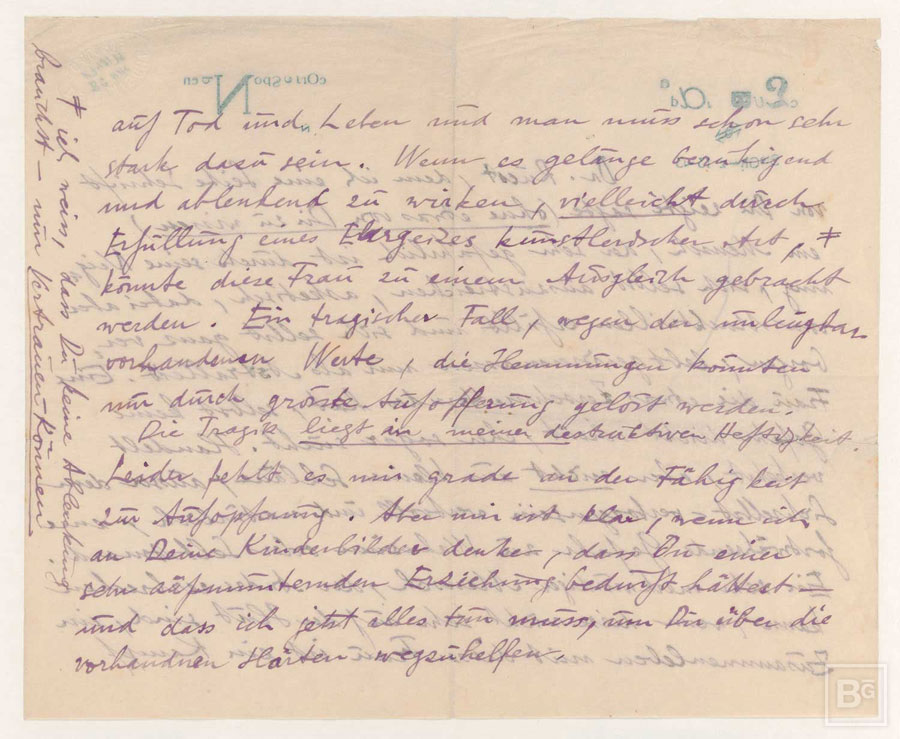 auf Tod und Leben und man muss schon sehr
stark dazu sein. Wenn es gelänge beruhigend
und ablenkend zu wirken, vielleicht durch
Erfüllung eines Ehrgeizes künstlerischer Art, *
könnte diese Frau zu einem Ausgleich gebracht
werden. Ein tragischer Fall, wegen der unleugbar
vorhandenen Werte, die Hemmungen konnten
nur durch grösste Aufopferung gelöst werden.
Die Tragik liegt in meiner destruktiven Heftigkeit
Leider fehlt es mir grade an der Fähigkeit
zur Aufopferung. Aber mir ist klar, wenn ich
an Deine Kinderbilder denke, dass Du einer
sehr aufmunternden Erziehung bedurft hättest –
und dass ich jetzt alles tun muss, um Dir über die
vorhandnen Härten wegzuhelfen.
* ich weiss, dass Du keine Ablenkung
brauchst – nur Vertrauen können
BG